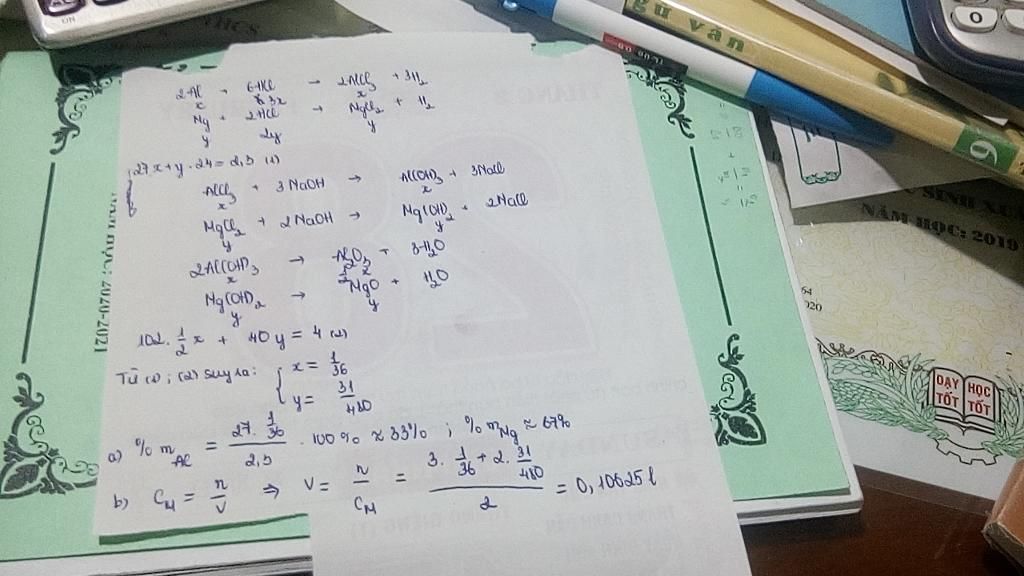 ON
gu van
9
0
2Al + 6HCl → 2AlCl3 + 3H2
x 3x x
Mg + 2HCl → MgCl2 + H2
y 2y y
27x + y . 24 = 2,3 (1)
AlCl3 + 3NaOH → Al(OH)3 + 3NaCl
x x
MgCl2 + 2NaOH → Mg(OH)2 + 2NaCl
y y
2Al(OH)3 → Al2O3 + 3H2O
x 1/2 x
Mg(OH)2 → MgO + H2O
y y
102 . 1/2 x + 40y = 4 (2)
Từ (1) ; (2) suy ra: { x = 1/36
y = 31/480
a) % m Al = 27 . 1/36 / 2,3 . 100% ≈ 33% ; % m Mg ≈ 67%
b) CM = n/V ⇒ V = n/CM = 3 . 1/36 + 2 . 31/480 / 2 = 0,10625 l
2020-2021
SINH XU
NĂM HỌC: 2019
020
DẠY HỌC
TỐT TỐT